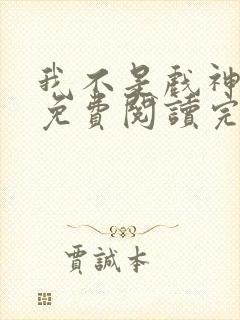 我不是戲神
免費閱讀完
賈誠本